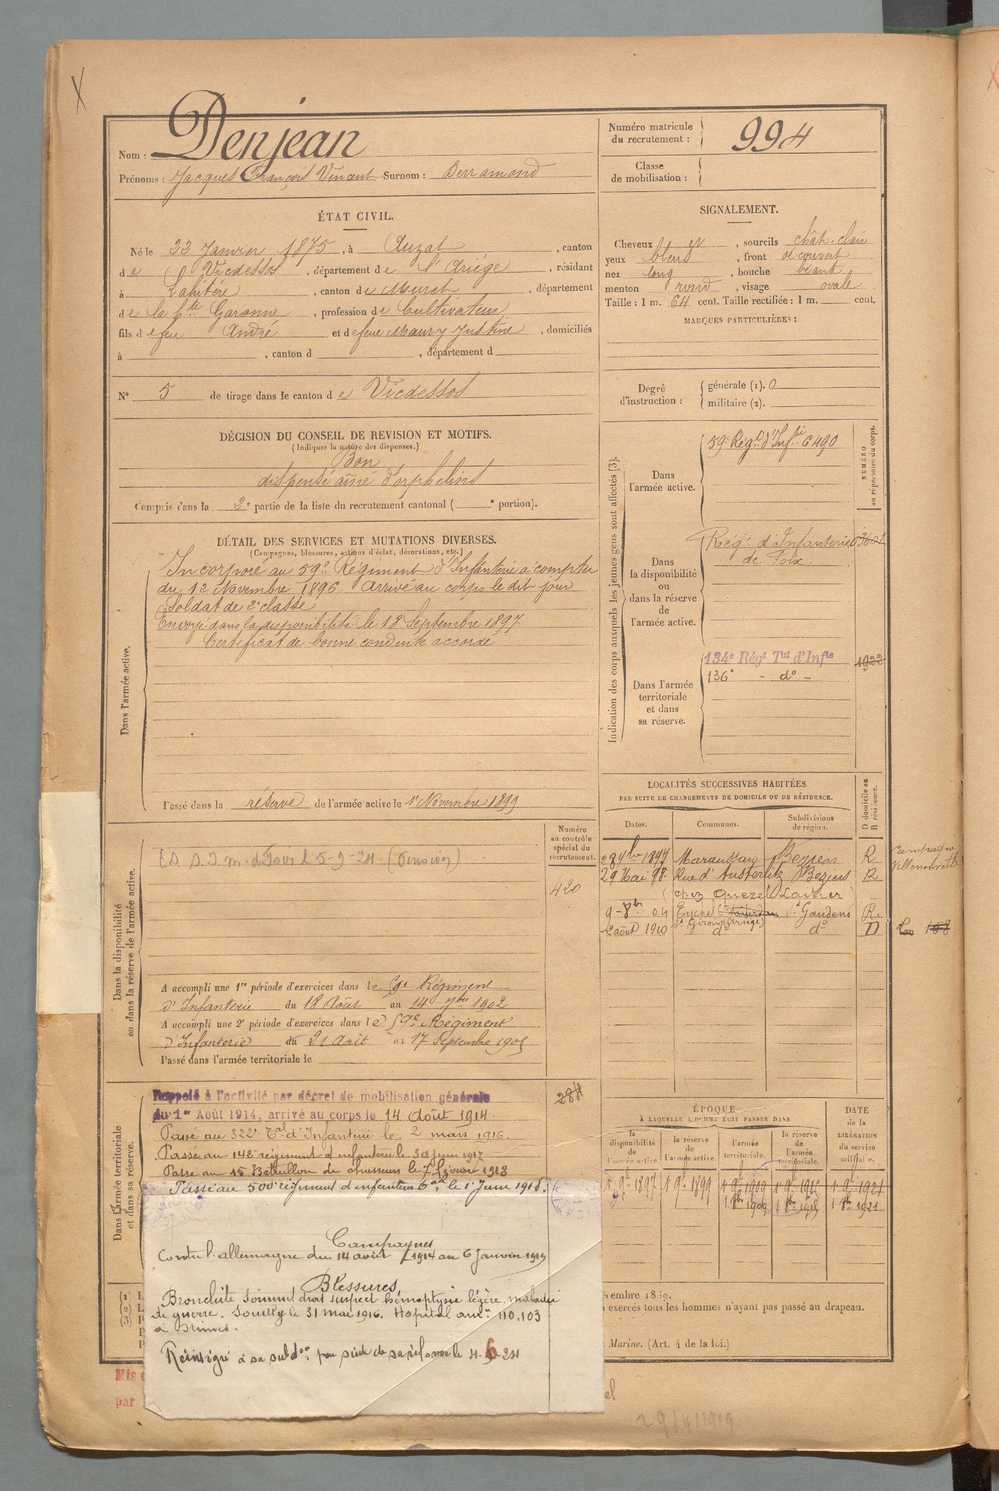 Nom : Denjean
Prénoms : Jacques François Vincent Surnom : Derramond
Numéro matricule du recrutement : 994
Classe de mobilisation :
ÉTAT CIVIL.
Né le 22 Janvier 1875, à Auzat, canton
de Vicdessos, département de l'Ariège, résidant
à Labitère, canton de Muret, département
de la hte Garonne, profession de Cultivateur
fils de feu André et de feue Maury Justine, domiciliés
à , canton d , département d
N° 5 de tirage dans le canton de Vicdessos
SIGNALEMENT.
Cheveux bl , sourcils chât. clairs
yeux bleus, front découvert
nez long, bouche
menton rond, visage ovale
Taille : 1 m. 64 cent. Taille rectifiée : 1 m. cent.
MARQUES PARTICULIÈRES :
Degré d'instruction :
générale (1). 0
militaire (2).
DÉCISION DU CONSEIL DE REVISION ET MOTIFS.
(Indiquer la nature des dispenses.)
Bon
dispensé aîné d'orphelins
Compris dans la 2e partie de la liste du recrutement cantonal ( e portion).
DÉTAIL DES SERVICES ET MUTATIONS DIVERSES.
(Campagnes, blessures, actions d'éclat, décorations, etc.)
Dans l'armée active.
Incorporé au 59e Régiment d'Infanterie à compter
du 12 Novembre 1896 Arrivé au corps le dit jour
Soldat de 2e classe
Envoyé dans la disponibilité le 18 Septembre 1897
Certificat de bonne conduite accordé
Passé dans la réserve de l'armée active le 1er Novembre 1899
Indication des corps auxquels les jeunes gens sont affectés (3).
NUMÉRO au répertoire du corps.
Dans l'armée active.
59e Régt d'Infie 6490
Dans la disponibilité ou dans la réserve de l'armée active.
Régt d'Infanterie
de Foix
Dans l'armée territoriale et dans sa réserve.
134e Régt Tal d'Infie 1922
136e - do -
LOCALITÉS SUCCESSIVES HABITÉES
PAR SUITE DE CHANGEMENTS DE DOMICILE OU DE RÉSIDENCE.
Dates. Communes. Subdivisions de région. D domicile ou R résidence.
28 7bre 1897 Maraussan Béziers R
29 Mai 98 Rue d'Austerlitz Béziers R
chez Queze Laitier
9-8bre 04 St Gaudens R.
août 1910 do do D
Numéro au contrôle spécial du recrutement.
420
Dans la disponibilité ou dans la réserve de l'armée active.
A accompli une 1re période d'exercices dans le Régiment
d'Infanterie du 18 Août au 14 7bre 1902
A accompli une 2e période d'exercices dans le 59e Régiment
d'Infanterie du 21 Août au 17 Septembre 1905
Passé dans l'armée territoriale le
Dans l'armée territoriale et dans sa réserve.
Rappelé à l'activité par décret de mobilisation générale
du 1er Août 1914, arrivé au corps le 14 Août 1914.
Passé au 322e Tal d'Infanterie le 2 mars 1916.
Passé au 142e régiment d'infanterie le 30 juin 1917
Passé au 15 Bataillon de chasseurs le 7 février 1918
Passé au 500e régiment d'infanterie le 1er Juin 1918.
284
Campagnes
Contre l'allemagne du 14 août 1914 au 6 Janvier 1919
Blessures
Bronchite sommet droit suspect hémoptysie légère, maladie
de guerre. Souilly le 31 mai 1916. Hopital 110.103
ÉPOQUE
À LAQUELLE L'HOMME DOIT PASSER DANS
la disponibilité de l'armée active la réserve de l'armée active l'armée territoriale. la réserve de l'armée territoriale. DATE de la LIBÉRATION du service militaire.
1 9e 1897 1 9e 1899 1 9e 1909 1 9e 1915 1 9e 1921
1 8bre 1909 1 8bre 1915 1 8bre 1921
exercés tous les hommes n'ayant pas passé au drapeau.
Marine. (Art. 4 de la loi.)
Mis
par
29/4/1919